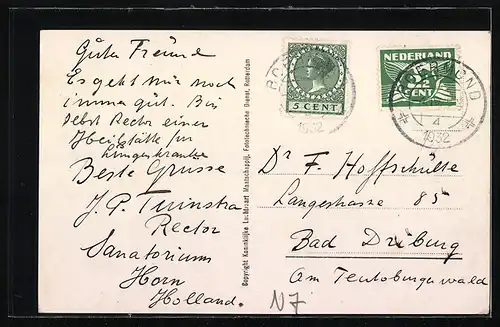 Guter Freund
Es geht mir noch
immer gut. Bin
selbst Rector einer
Heilstätte für
Lungenkranke
Beste Grüsse
J. P. Tuinstra
Rector
Sanatorium
Horn
Holland.
Copyright Koninklijke Luchtvaart Maatschappij, Fototechnische Dienst, Rotterdam
5 CENT
1932
NEDERLAND
CENT
ROERMOND
4
1932
Dr F. Hoffschülte
Langestrasse 85
Bad Driburg
am Teutoburgerwald
N7